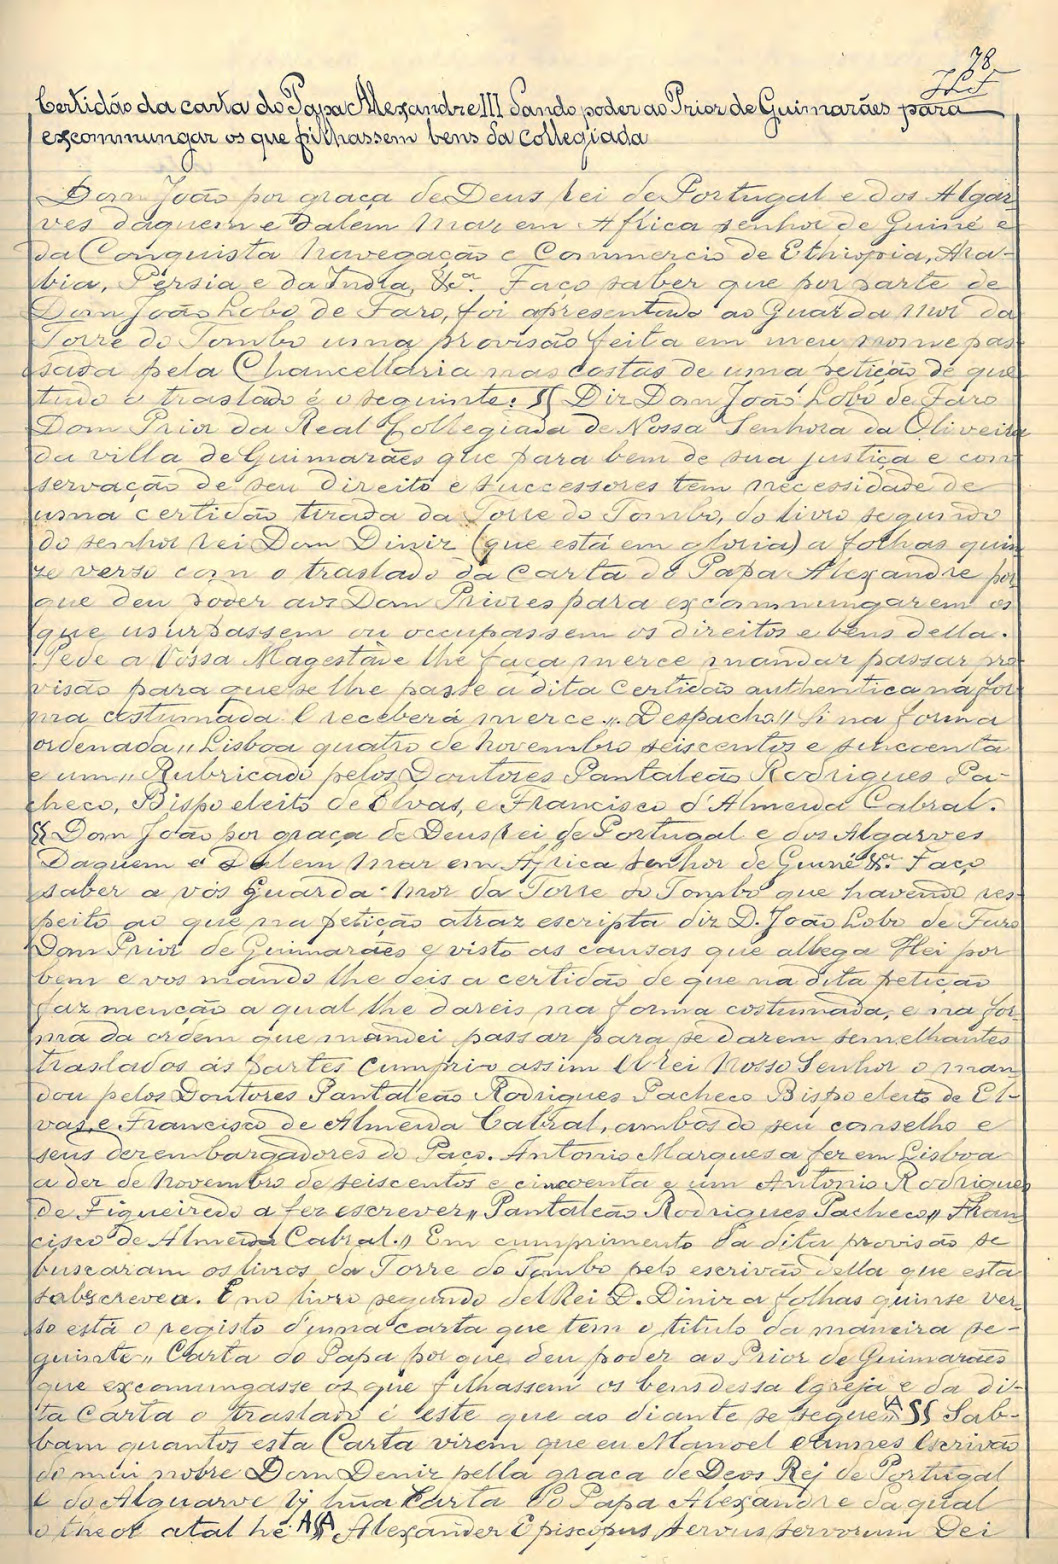 78
Certidão da carta do Papa Alexandre III dando poder ao Prior de Guimarães para
excommungar os que filhassem bens da collegiada
Dom João por graça de Deus rei de Portugal e dos Algar-
ves daquem e dalem mar em Africa senhor de Guiné e
da Conquista navegação e Commercio de Ethiopia, Ara-
bia, Pérsia e da India, &ª. Faço saber que por parte de
Dom João Lobo de Faro, foi apresentado ao Guarda mor da
Torre do Tombo uma provisão feita em meu nome pas-
sada pela Chancellaria nas costas de uma petição de que
tudo o traslado é o seguinte: §§ Diz Dom João Lobo de Faro
Dom Prior da Real Collegiada de Nossa Senhora da Oliveira
da villa de Guimarães que para bem de sua justiça e con-
servação de seu direito e successores tem necessidade de
uma certidão tirada da Torre do Tombo, do livro segundo
do senhor rei Dom Diniz (que está em gloria) a folhas quin-
se verso com o traslado da carta do Papa Alexandre por
que deu poder aos Dom Priores para excommungarem os
que usurpassem ou occupassem os direitos e bens della.
Pede a Vossa Magestade lhe faça merce mandar passar pro-
visão para que se lhe passe a dita certidão authentica na for-
ma costumada E receberá merce „ Despacho „ Si na forma
ordenada „ Lisboa quatro de novembro seiscentos e sincoenta
e um „ Rubricado pelos Doutores Pantaleão Rodrigues Pa-
checo, Bispo eleito de Elvas, e Francisco d'Almeida Cabral.
§§ Dom João por graça de Deus rei de Portugal e dos Algarves
Daquem e Dalem mar em Africa senhor de Guiné &ª. Faço
saber a vós Guarda-mor da Torre do Tombo que havendo res-
peito ao que na petição atraz escripta diz D. João Lobo de Faro
Dom Prior de Guimarães e visto as causas que allega Hei por
bem e vos mando lhe deis a certidão de que na dita petição
faz menção a qual lhe dareis na forma costumada, e na for-
ma da ordem que mandei passar para se darem semelhantes
traslados ás partes cumpri-o assim El rei Nosso Senhor o man-
dou pelos Doutores Pantaleão Rodrigues Pacheco Bispo eleito de El-
vas, e Francisco de Almeida Cabral, ambos do seu conselho e
seus dezembargadores do Paço. Antonio Marques a fez em Lisboa
a dez de novembro de seiscentos e cincoenta e um Antonio Rodrigues
de Figueiredo a fez escrever „ Pantaleão Rodrigues Pacheco „ Fran-
cisco de Almeida Cabral. „ Em cumprimento da dita provisão se
buscaram os livros da Torre do Tombo pelo escrivão della que esta
subscreveo. E no livro segundo del Rei D. Diniz a folhas quinse ver-
so está o registo d'uma carta que tem o titulo da maneira se-
guinte „ Carta do Papa por que deu poder ao Prior de Guimarães
que excomungasse os que filhassem os bens dessa Igreja e da di-
ta carta o traslado é este que ao diante se segue §§ Sab-
bam quantos esta Carta virem que eu Manoel eannes Escrivão
do mui nobre Dom Deniz pella graca de Deos Rej de Portugal
E do Alguarve vj hũa Carta do Papa Alexandre da qual
o theor atal he Alexander Episcopus servus servorum Dei